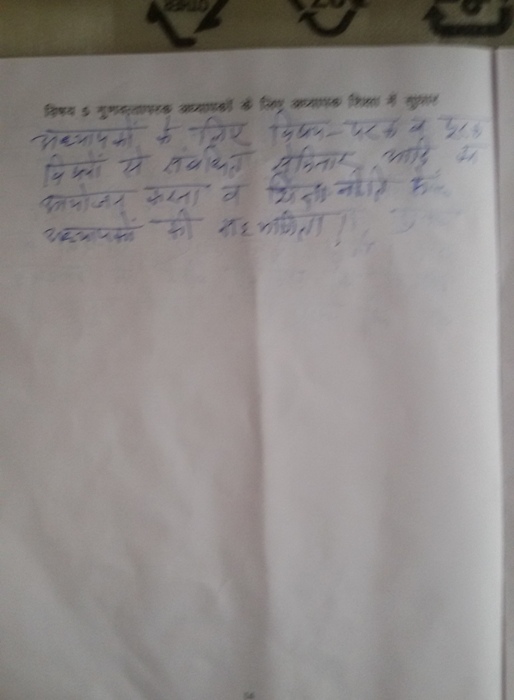 OTHER
विषय 5 गुणवत्तापरक अध्यापकों के लिए अध्यापक शिक्षा में सुधार
अध्यापकों के लिए विषय-परक व
विषयों से संबंधित सेमिनार आदि का
आयोजन करना व शिक्षा नीति में
अध्यापकों की सहभागिता।